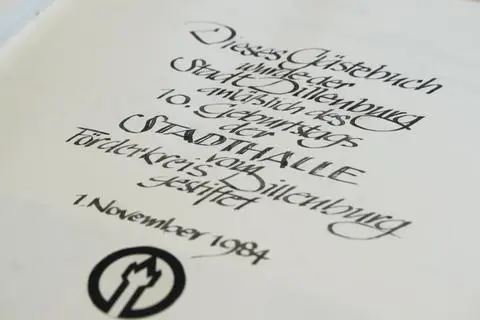 Dieses Gästebuch
wurde der
Stadt Dillenburg
anläßlich des
10. Geburtstags
der
STADTHALLE
vom
Förderkreis Dillenburg
gestiftet
1. November 1984